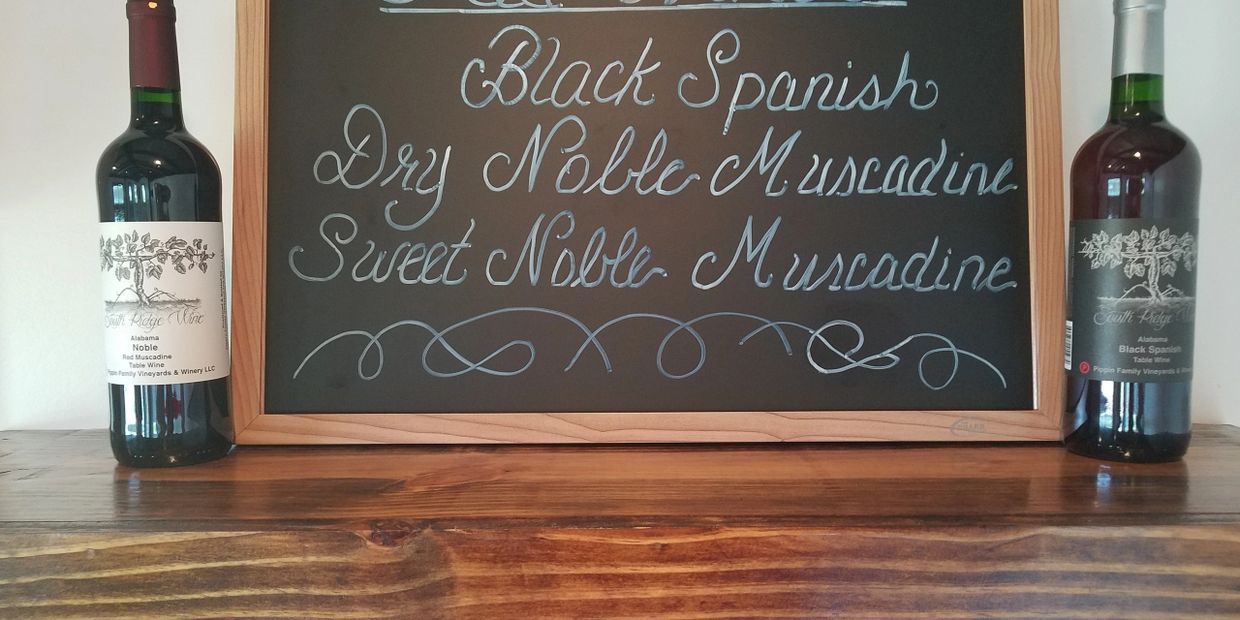 Black Spanish
Dry Noble Muscadine
Sweet Noble Muscadine
South Ridge Wine
Alabama
Noble
Red Muscadine
Table Wine
Pippin Family Vineyards & Winery LLC
South Ridge Wine
Alabama
Black Spanish
Table Wine
Pippin Family Vineyards & Wine